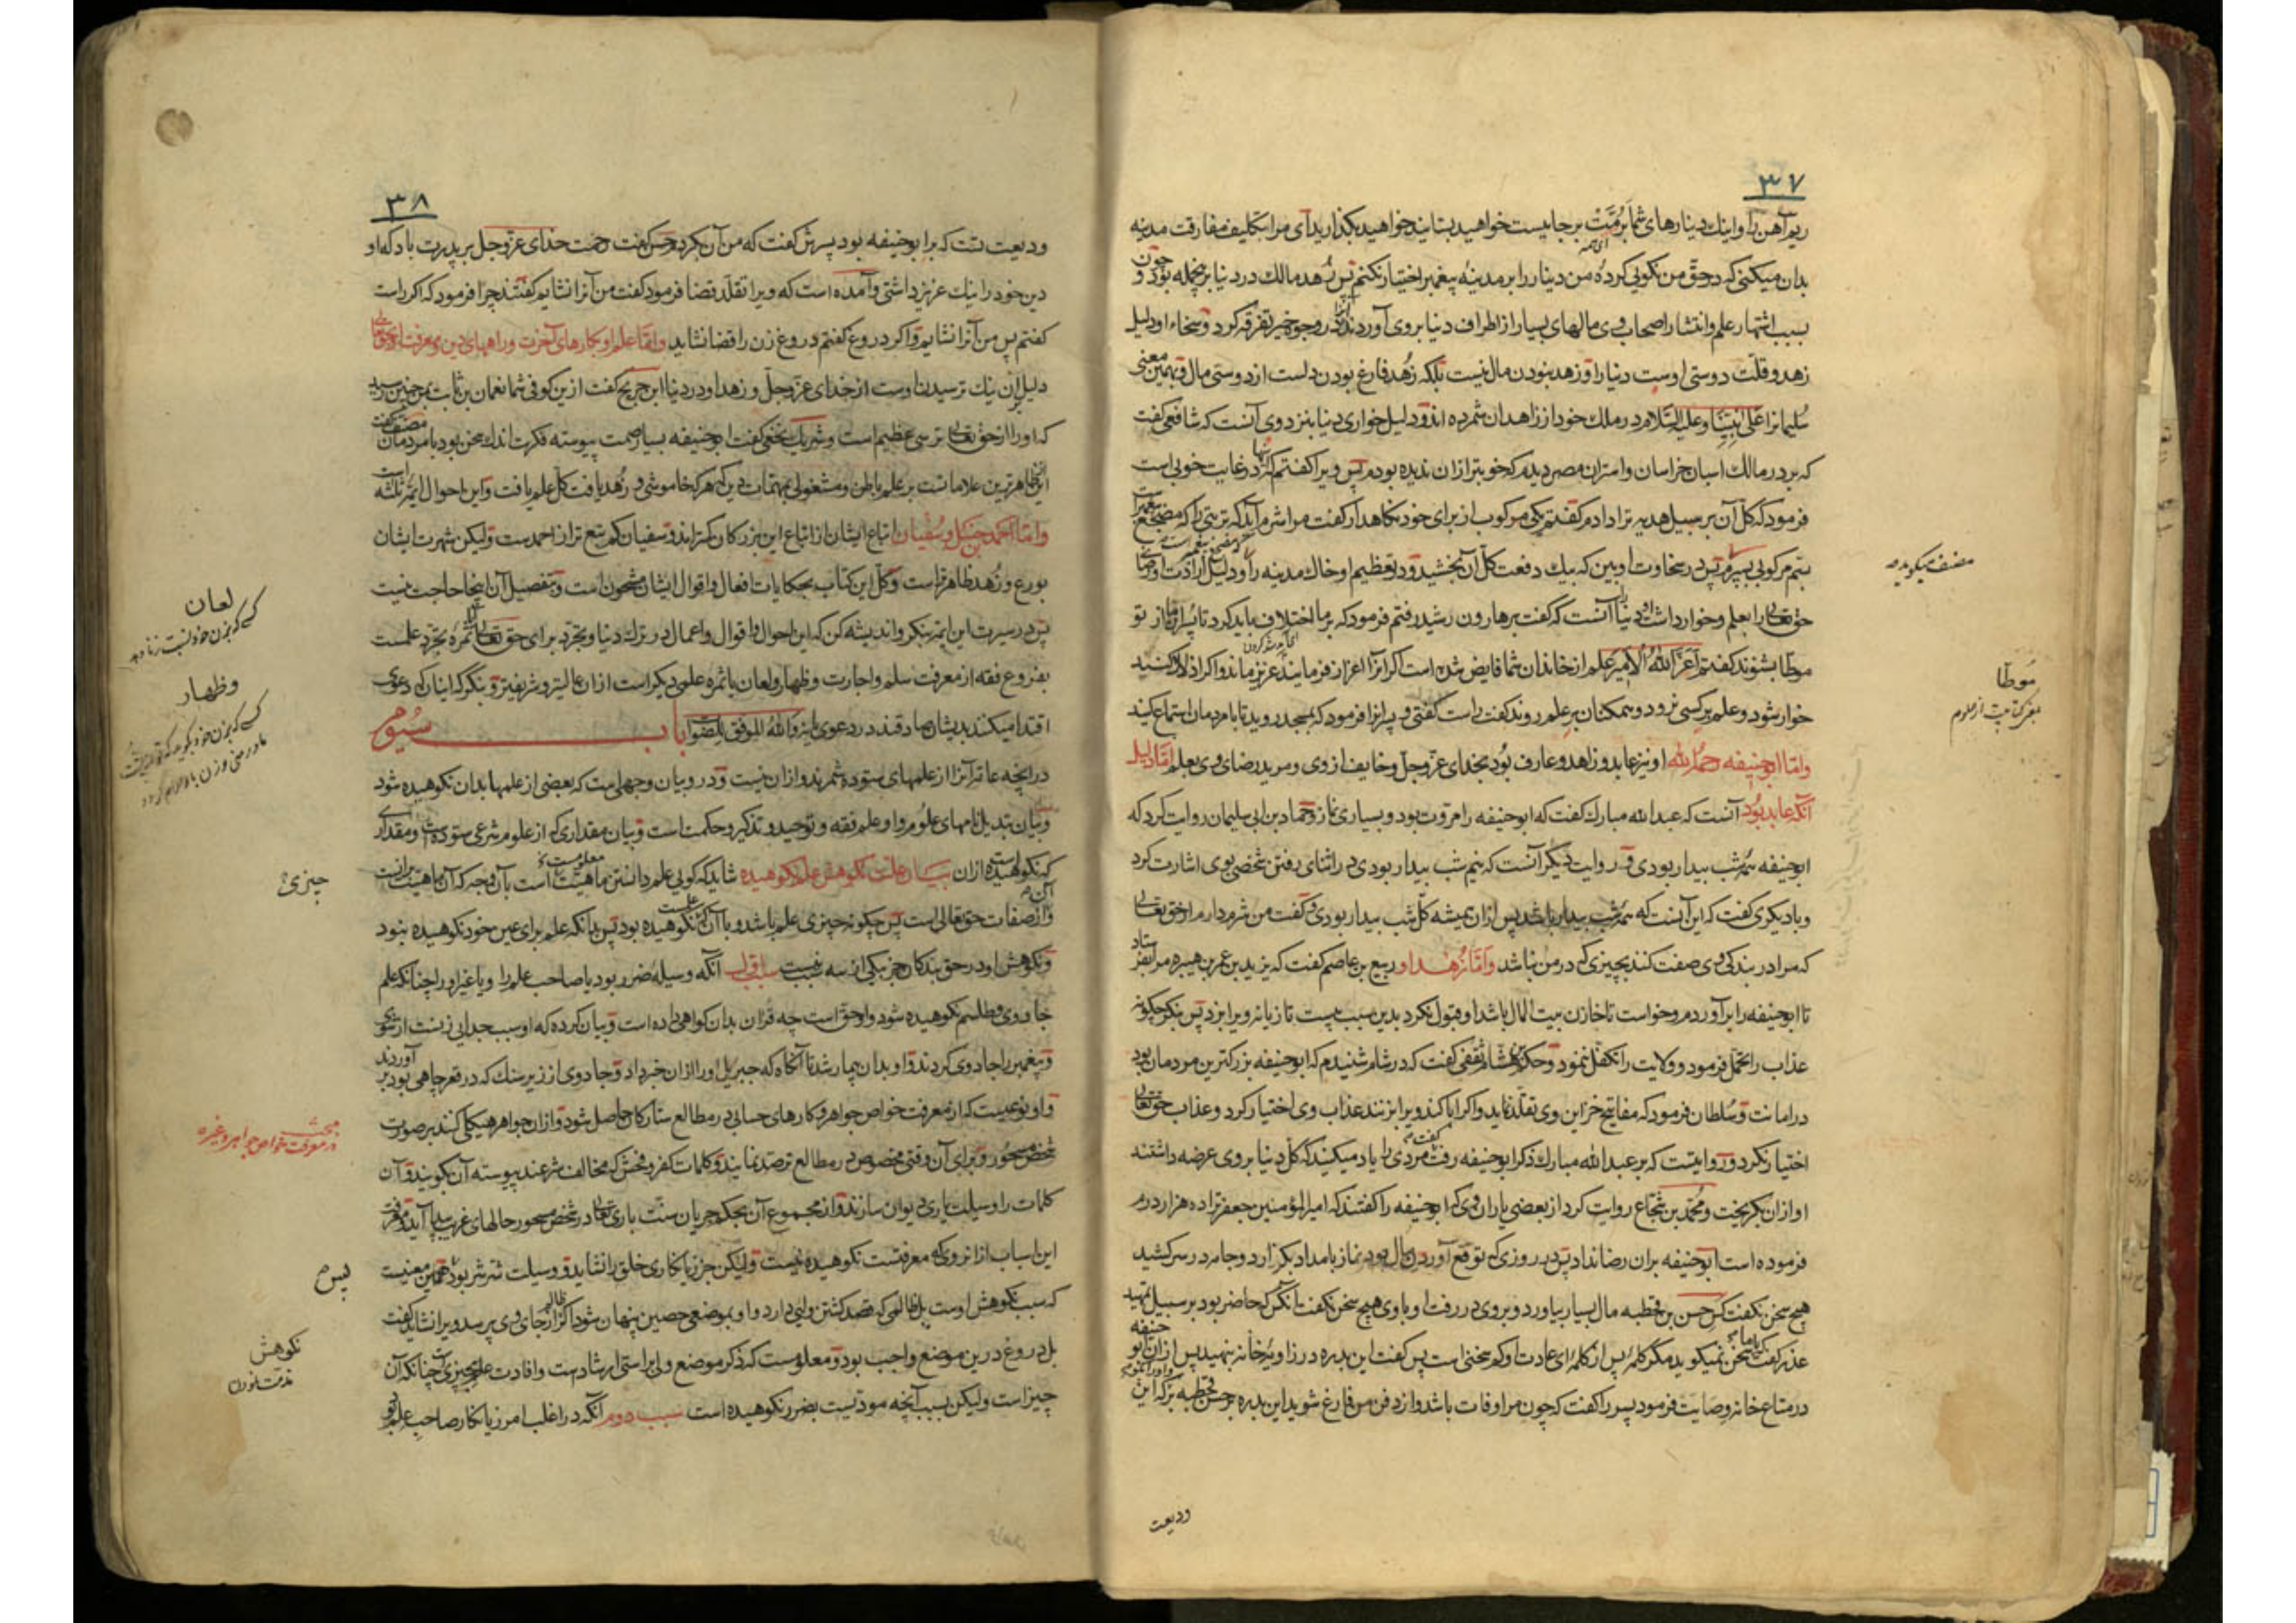 ۳۷
ریم آهن را و اینك دینارهای شما برمت بر جایست خواهید بستانید خواهید بگذارید ای مرا بتکلیف مفارقت مدینه
بدان میکنی که در حق من نکویی کرده من دینار را بر مدینه پیغمبر اختیار نکنم پس زهد مالك در دنیا برین جمله بود و چون
بسبب اشتهار علم و انتشار اصحاب وی مالهای بسیار از اطراف دنیا بر وی آوردندی در وجوه خیر تفرقه کرد و سخاء او دلیل
زهد و قلت دوستی اوست دنیا را و زهد نبودن مال نیست بلکه زهد فارغ بودن دلست از دوستی مال و بهمین معنی
سلیمان را علی نبینا و علیه السلام در ملك خود از زاهدان شمرده اند و دلیل خواری دنیا بنزد وی آنست که شافعی گفت
که بر در مالك اسبان خراسان و استران مصر دیدم که خوبتر از آن ندیده بودم پس ویرا گفتم که اینها در غایت خوبی است
فرمود که کل آن بر سبیل هدیه ترا دادم گفتم یکی مرکوب از برای خود نگاهدار گفت مرا شرم آید که تربتی را که مضجع پیغمبر است
بسم مرکوبی بسپرم پس در سخاوت او ببین که بیك دفعت کل آن بخشید و در تعظیم او خاك مدینه را و دلیل ارادت او رضای
حق تعالی را بعلم و خوار داشت او دنیا را آنست که گفت بر هارون رشید رفتم فرمود که بر ما اختلاف باید کرد تا پسران ما از تو
موطا بشنوند گفتم اعز الله الامیر علم از خاندان شما فایض شده است اگر آنرا اعزاز فرمایند عزیز ماند و اگر اذلال کنید
خوار شود و علم بر کسی نرود و همگنان بر علم روند گفت راست گفتی و پسرانرا فرمود که بمسجد روید تا با مردمان استماع کنید
و امّا ابوحنیفه رحمه الله او نیز عابد و زاهد و عارف بود بخدای عزوجل و خایف از وی و مرید رضای وی بعلم امّا دلیل
آنکه عابد بود آنست که عبدالله مبارك گفت که ابوحنیفه را مروت بود و بسیاری نماز و حماد بن ابی سلیمان روایت کرد که
ابوحنیفه همه شب بیدار بودی و در روایت دیگر آنست که نیم شب بیدار بودی در اثنای رفتن شخصی بوی اشارت کرد
و با دیگری گفت که این آنست که همه شب بیدار باشد پس از آن همیشه کل شب بیدار بودی و گفت من شرم دارم از حق تعالی
که مرا در بندگی وی صفت کنند بچیزی که در من نباشد و امّا زهد او ربیع بن عاصم گفت که یزید بن عمر بن هبیره مرا بفرستاد
تا ابوحنیفه را بر آوردم و خواست تا خازن بیت المال باشد او قبول نکرد بدین سبب بیست تازیانه ویرا بزد پس بنگر چگونه
عذاب را تحمل فرمود و ولایت را تکفل ننمود و حکم بن هشام ثقفی گفت که در شام شنیدم که ابوحنیفه بزرگترین مردمان بود
در امانت و سلطان فرمود که مفاتیح خزاین وی تقلد نماید و اگر ابا کند ویرا بزنند عذاب وی اختیار کرد و عذاب حق تعالی
اختیار نکرد و روایتست که بر عبدالله مبارك ذکر ابوحنیفه رفت گفت مردی را یاد میکنید که کل دنیا بر وی عرضه داشتند
او از آن بگریخت و محمد بن شجاع روایت کرد از بعضی یاران وی که ابوحنیفه را گفتند که امیر المؤمنین جعفر ترا ده هزار درم
فرموده است ابوحنیفه بران رضا نداد پس در روزی که توقع آوردن مال بود نماز بامداد بگزارد و جامه در سر کشید
هیچ سخن نگفت کس حسن بن قحطبه مال بسیار بیاورد و بر وی در رفت او با وی هیچ سخن نگفت آنکس که حاضر بود بر سبیل تمهید
عذر گفت که با ما سخن نمیگوید مگر کلمه پس از کلمه ای عادت او کم سخنی است پس گفت این بدره در زاویه خانه بنهید پس از آن ابو حنیفه
در متاع خانه وصایت فرمود پسر را گفت که چون مرا وفات باشد و از دفن من فارغ شوید این بدره بر حسن قحطبه بر که این
ودیعت
مصنف میگوید
موطا
۳۸
ودیعت تست که بر ابوحنیفه بود پسرش گفت که من آن کردم حسن گفت رحمت خدای عزوجل بر پدرت باد که او
دین خود را نیك عزیز داشتی و آمده است که ویرا تقلد قضا فرمود گفت من آنرا نشایم گفتند چرا فرمود که اگر راست
گفتم پس من آنرا نشایم و اگر دروغ گفتم دروغ زن را قضا نشاید و امّا علم او بکارهای آخرت و راههای دین و معرفت خدای تعالی
دلیل آن نیك ترسیدن اوست از خدای عزوجل و زهد او در دنیا ابن جریج گفت از این کوفی شما نعمان بن ثابت بمن چنین رسید
که او را از حق تعالی ترسی عظیم است و شریك نخعی گفت ابوحنیفه بسیار صمت پیوسته فکرت اندك سخن بود با مردمان مصنف گفت
این ظاهرترین علاماتست بر علم باطن و مشغولی بمهمات دین که هر که خاموشی و زهد یافت کل علم یافت و این احوال ائمه ثلثه است
و امّا احمد حنبل و سفیان اتباع ایشان از اتباع این بزرگان کمتراند و سفیان کم تبع تر از احمدست ولیکن شهرت ایشان
بورع و زهد ظاهر تر است و کل این کتاب بحکایات افعال و اقوال ایشان مشحون است و بتفصیل آن اینجا حاجت نیست
پس در سیرت این ائمه بنگر و اندیشه کن که این احوال و اقوال و اعمال در ترك دنیا و تجرد برای حق تعالی ثمره مجرد علمست
بفروع فقه از معرفت سلم و اجارت و ظهار و لعان یا ثمره علمی دیگر است از آن عالیتر و شریفتر و بنگر که اینان که دعوی
اقتدا میکنند بدیشان صادقند در دعوی یا نه والله الموفق للصواب باب سیوم
در آنچه عامه آنرا از علمهای ستوده شمرند و از آن نیست و در و بیان وجهی است که بعضی از علمها بدان نکوهیده شود
و بیان تبدیل نامهای علوم و او علم فقه و توحید و تذکیر و حکمت است و بیان مقداری که از علوم شرعی ستوده است و مقداری
که نکوهیده است از آن بیان علت نکوهش علم نکوهیده شاید که گویی علم دانستن ماهیت معلومست بآن وجه که آن ماهیت برانست
و از صفات حق تعالی است پس چگونه چیزی علم باشد و با آن که علمست نکوهیده بود پس بدانکه علم برای عین خود نکوهیده نبود
و نکوهش او در حق بندگان جز یکی از سه سبب نیست سبب اول آنکه وسیله ضرر بود یا صاحب علم را و یا غیر او را چنانکه علم
جادوی و طلسم نکوهیده شود و او حق است چه قرآن بدان گواهی داده است و بیان کرده که او سبب جدایی زنست از شوی
و پیغمبر را جادوی کردند و او بدان بیمار شد تا آنگاه که جبریل او را از آن خبر داد و جادوی از زیر سنگ که در قعر چاهی بود بر آوردند
و او نوعیست که از معرفت خواص جواهر و کارهای حسابی در مطالع ستارگان حاصل شود و از آن جواهر هیکلی کنند بر صورت
شخص مسحور و برای آن وقتی مخصوص در مطالع ترصد نمایند و کلمات کفر و فحش که مخالف شرعند پیوسته آن بگویند و آن
کلمات را وسیلت یاری دیوان سازند و از مجموع آن بحکم جریان سنت باری تعالی در شخص مسحور حالهای غریب پیدا آید و معرفت
این اسباب از آنروی که معرفتست نکوهیده نیست ولیکن جز زیانکاری خلق را نشاید و وسیلت شر شر بود و همین معنیست
که سبب نکوهش اوست بل ظالمی که قصد کشتن ولیی دارد و او بموضعی حصین پنهان شود اگر ظالم از جای وی پرسد ویرا نشاید گفت
بل دروغ درین موضع واجب بود و معلومست که ذکر موضع ولی براستی ارشادست و افادت علم بچیزی چنانکه آن
چیز است ولیکن بسبب آنچه مودیست بضرر نکوهیده است سبب دوم آنکه در اغلب امر زیانکار صاحب علم بود
لعان
وظهار
چیزی
مبحث
در معرفت خواص جواهر و غیره
پس
نکوهش
مذمت نمودن